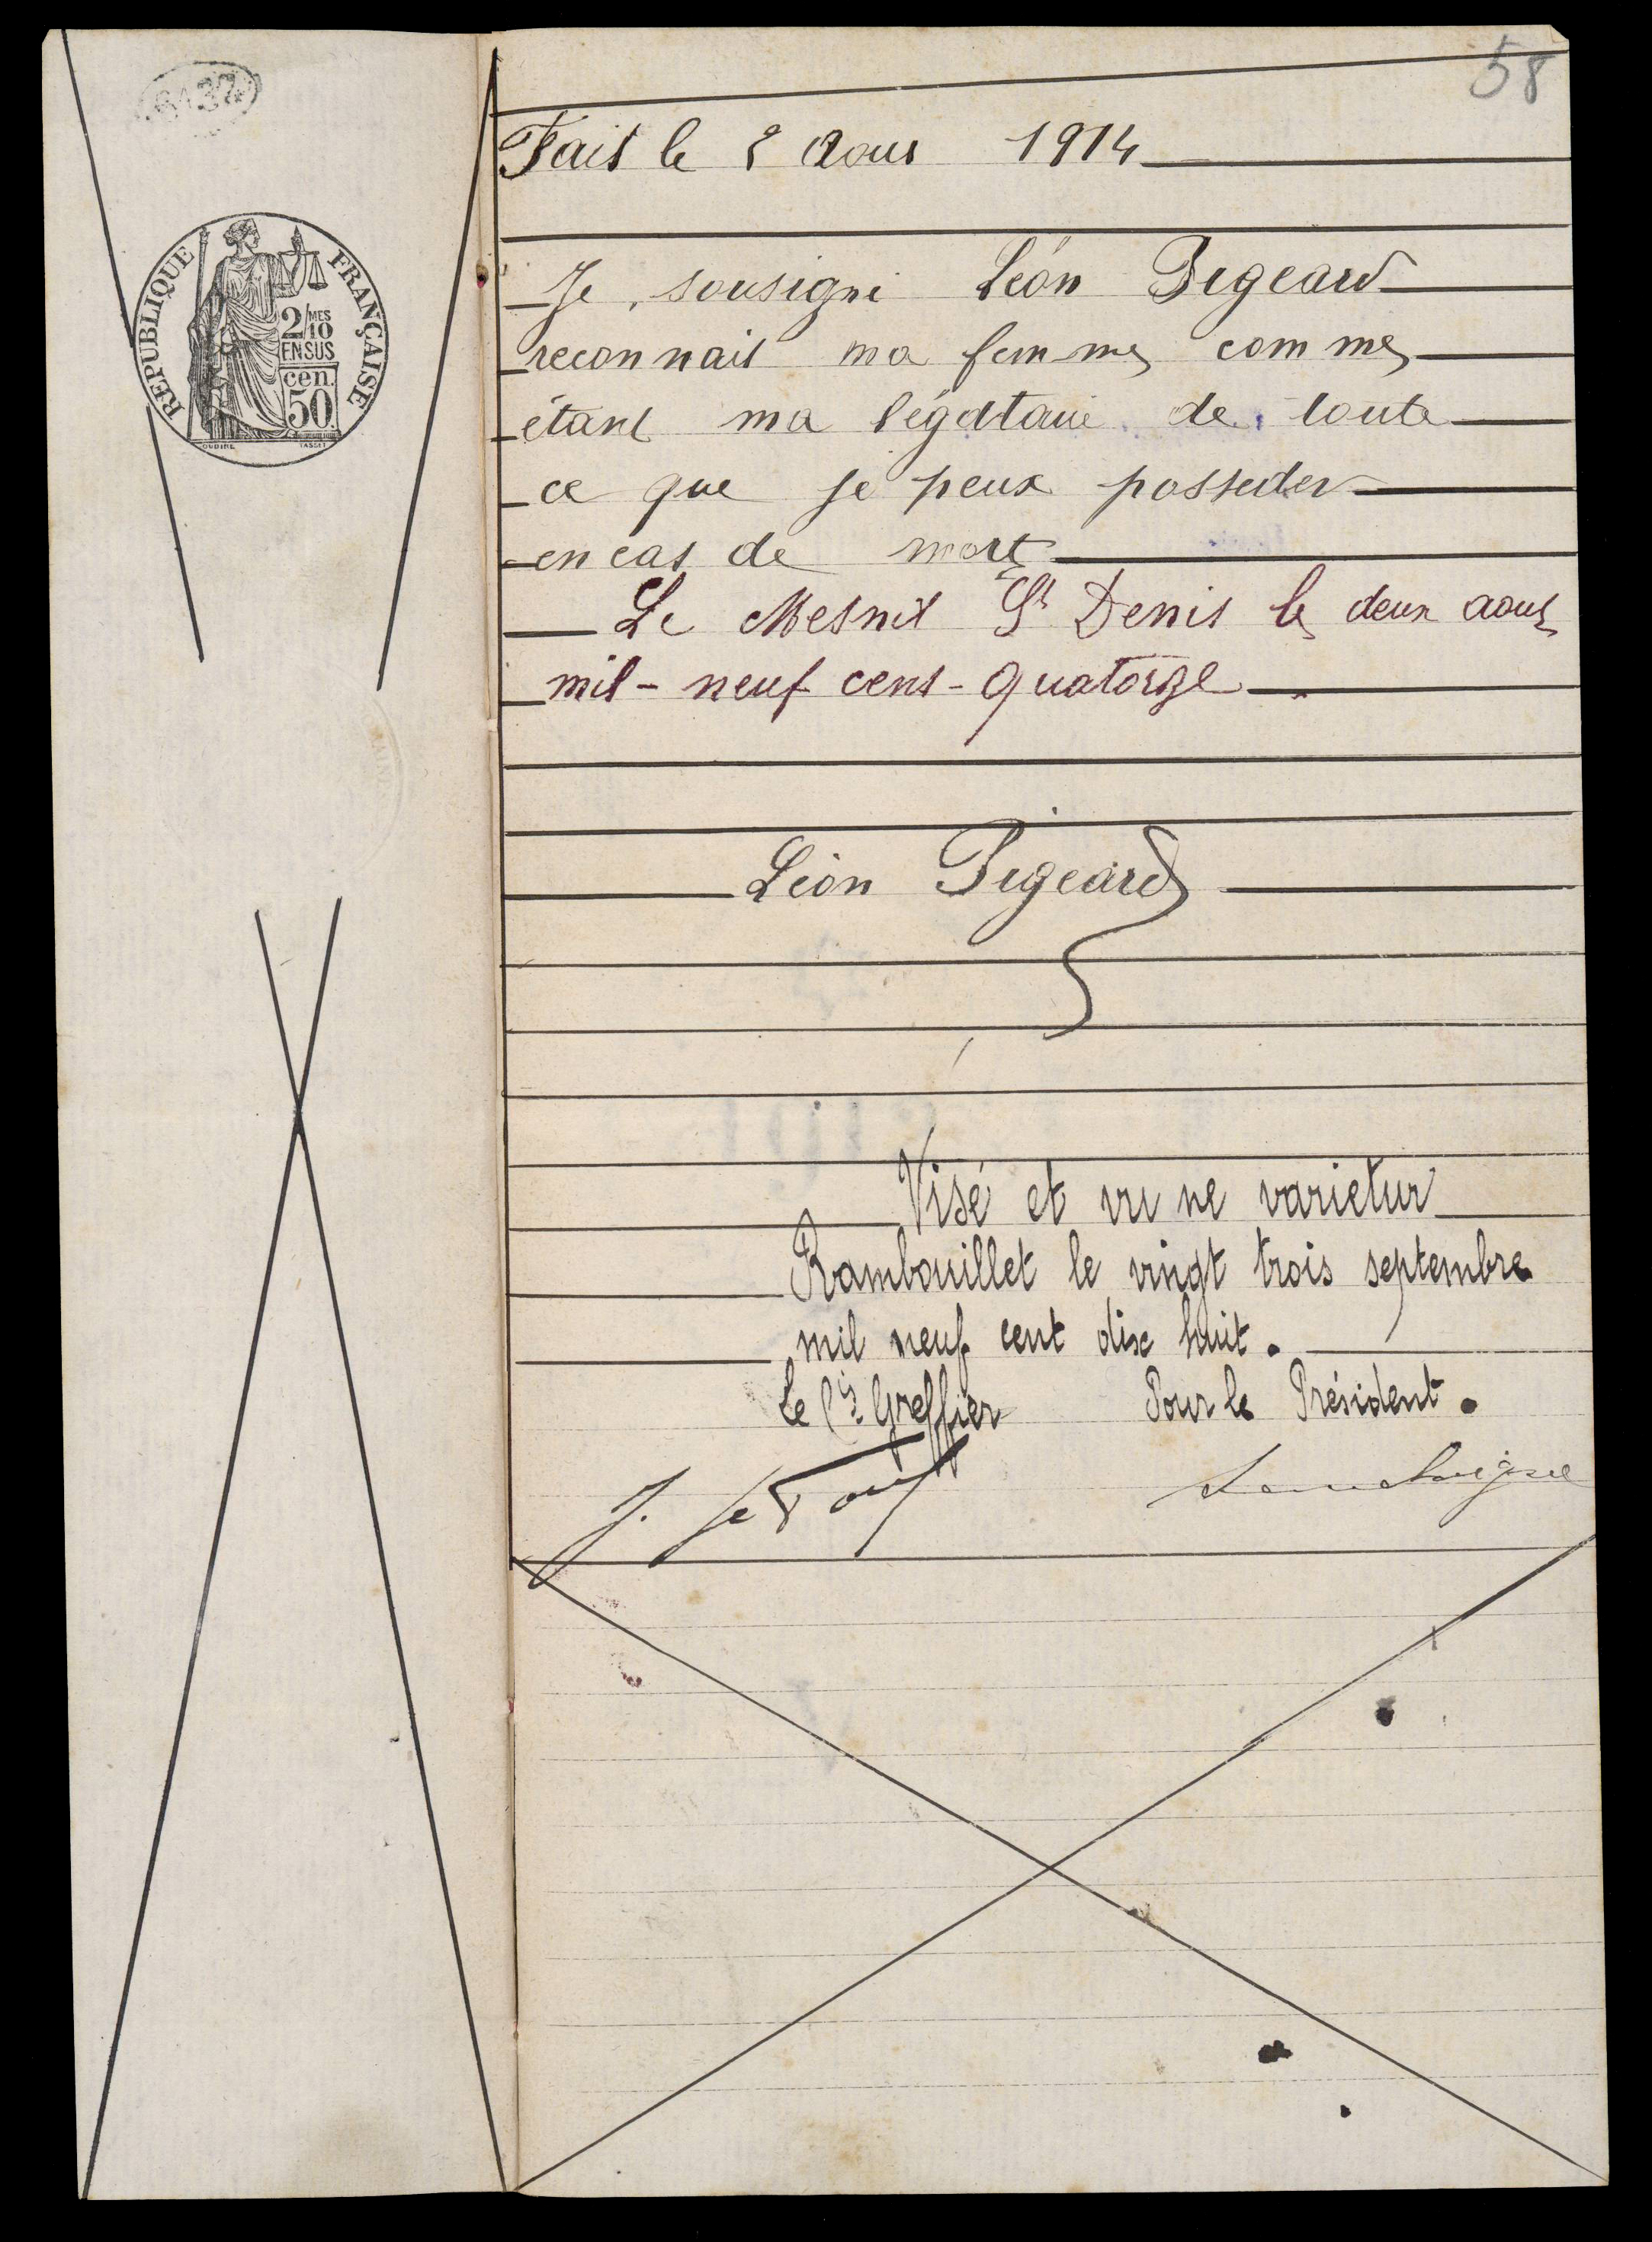 58
RÉPUBLIQUE FRANÇAISE
2/10 MES
EN SUS
cen.
50
OUDINÉ TASSET
Fait le 2 Aout 1914
Je, sousigné Léon Pigeard
reconnait ma femme comme
étant ma légataire de toute
ce que je peux posseder
en cas de mort
Le Mesnil St Denis le deux aout
mil-neuf cent-quatorze
Léon Pigeard
Visé et vu ne varietur
Rambouillet le vingt trois septembre
mil neuf cent dix huit.
Le Cis Greffier Pour le Président.